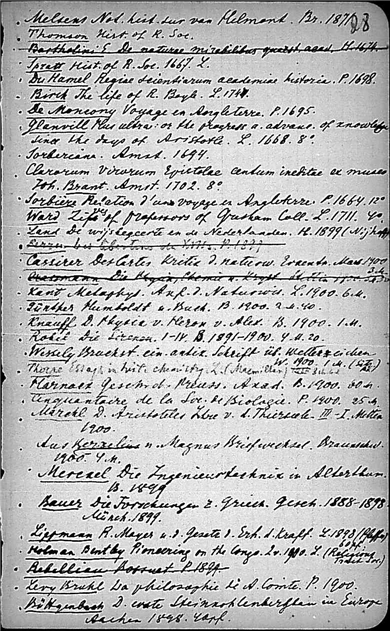 Melsens Not. hist. sur van Helmont. Br. 187
28
Thomson Hist. of R. Soc.
Bartholini E. De naturae mirabilibus quaest. acad. H. 1674.
Spratt Hist. of R. Soc. 1667. L.
Du Hamel Regiae scientiarum academiae historia. P. 1698.
Birch The life of R. Boyle. L. 1744.
De Moncony Voyage en Angleterre. P. 1695.
Glanvill Plus ultra: or the progress a. advanc. of knowledge
since the days of Aristotle. L. 1668. 8°.
Sorberiana. Amst. 1694.
Clarorum Virorum Epistolae centum ineditae ex museo
Joh. Brant. Amst. 1702. 8°.
Sorbière Relation d'une voyage en Angleterre. P. 1664. 12°
Ward Lifes of professors of Gresham Coll. L. 1711. 4°.
Land De wijsbegeerte en de Nederlanden. H. 1899 (Nijhoff)
Cassirer Descartes Kritik d. naturw. Erkentn. Marb. 1900
Kant Metaphys. Anf. d. Naturwiss. L. 1900. 6 M.
Günther Humboldt u. Buch. B. 1900. 2 M. 40.
Knauff D. Physik v. Heron v. Alex. B. 1900. 1 M.
Robié Die Sirenen. I-IV. B. 1891-1900. 4 M. 20.
Wesely Bruchst. ein. antik. Schrift üb. Wetterzeichen
1900. 1 M.
Thorpe Essays in hist. chemistry (Macmillan)
Harnack Geschich. Preuss. Akad. B. 1900. 60 M.
Cinquantaire de la Soc. de Biologie. P. 1900. 25 M.
D. Aristoteles Lehre v. d. Thierseele. III-I. Metten
1900.
Aus Berzelius u. Magnus Briefwechsel. Braunschw.
1900. 4 M.
Merckel Die Ingenieurtechnik in Alterthum
B. 1899
Bauer Die Forschungen z. Griech. Gesch. 1888-1898
Münch. 1899.
Lippmann R. Mayer u. d. Gesetz d. Erh. d. Kraft. L. 1898
Holman Bentley Pioneering on the Congo. 2 v. 1900. L. (Religious
Tract Soc.)
Rébelliau Bossuet P. 1894.
Levy Bruhl La philosophie d'A. Comte. P. 1900.
Böttgenbach D. erste Steinkohlenbergbau in Europa
Aachen 1898.